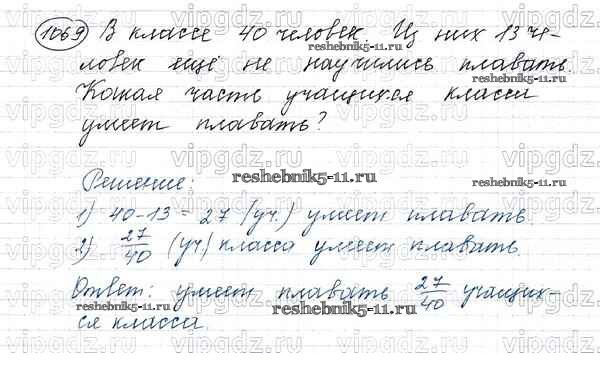 1069 В классе 40 человек. Из них 13 че-
ловек ещё не научились плавать.
Какая часть учащихся класса
умеет плавать?
Решение:
1) 40-13 = 27 (уч.) умеет плавать.
2) 27/40 (уч.) класса умеет плавать.
Ответ: умеет плавать 27/40 учащих-
ся класса.
vipgdz.ru
reshebnik5-11.ru